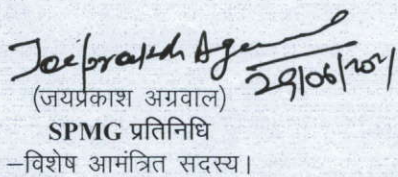 Jaiprakash Agarwal
29/06/2021
(जयप्रकाश अग्रवाल)
SPMG प्रतिनिधि
–विशेष आमंत्रित सदस्य।